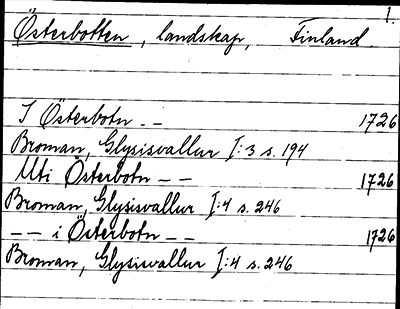 1.
Österbotten, landskap, Finland.
I Österbotn - - 1726
Broman, Glysisvallur I:3 s. 194
Uti Österbotn - - 1726
Broman, Glysisvallur I:4 s. 246
- - i Österbotn - - 1726
Broman, Glysisvallur I:4 s. 246